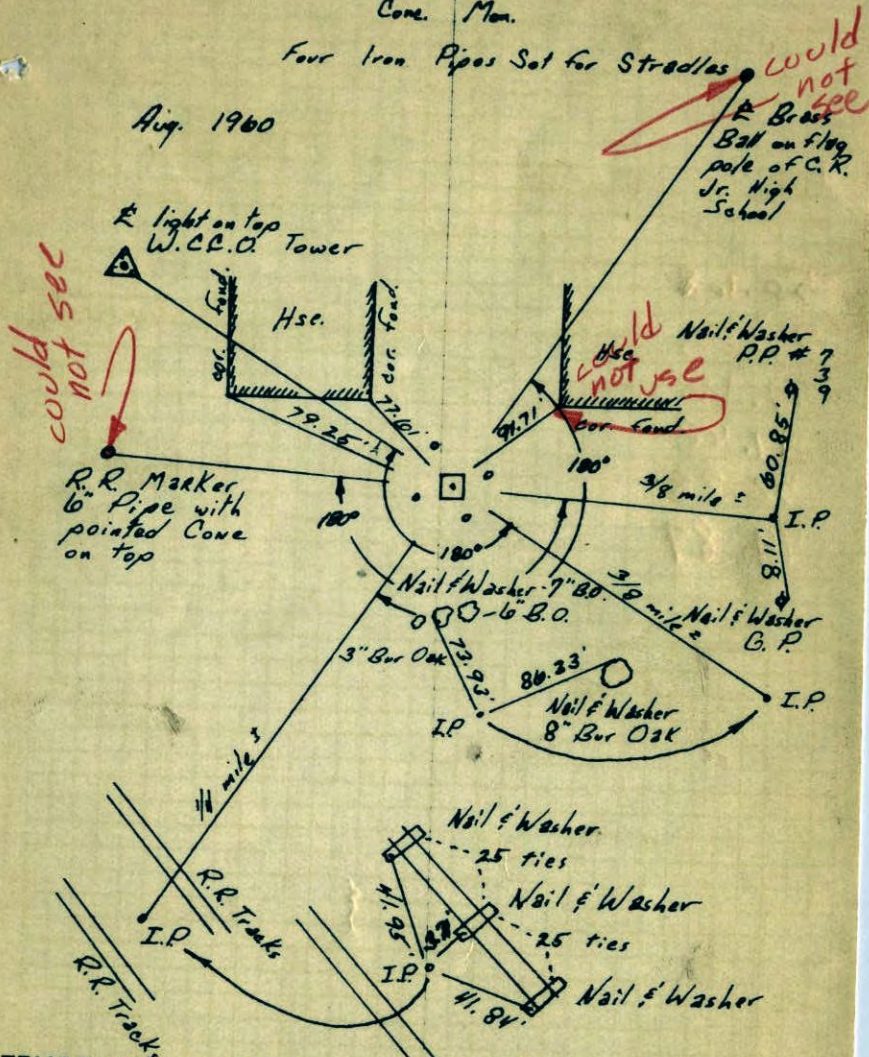 Conc. Mon.
Four Iron Pipes Set for Stradles
could
not
see
Aug. 1960
℄ Brass
Ball on flag
pole of C.R.
Jr. High
School
℄ light on top
W.C.C.O. Tower
could
not see
cor. fond.
Hse.
cor. fond.
Hse.
could
not use
Nail & Washer
P.P. # 7
3
9
79.25'
77.61'
91.71'
cor. fond.
60.85'
R.R. Marker
6" Pipe with
pointed Cone
on top
180°
180°
180°
3/8 mile ±
I.P.
8.11'
Nail & Washer - 7" B.O.
- 6" B.O.
3/8 mile ±
Nail & Washer
G.P.
3" Bur Oak
73.93'
86.33'
Nail & Washer
8" Bur Oak
I.P.
I.P.
1/4 mile ±
Nail & Washer
25 ties
Nail & Washer
25 ties
Nail & Washer
41.95'
41.84'
I.P.
I.P.
R.R. Tracks
R.R. Tracks